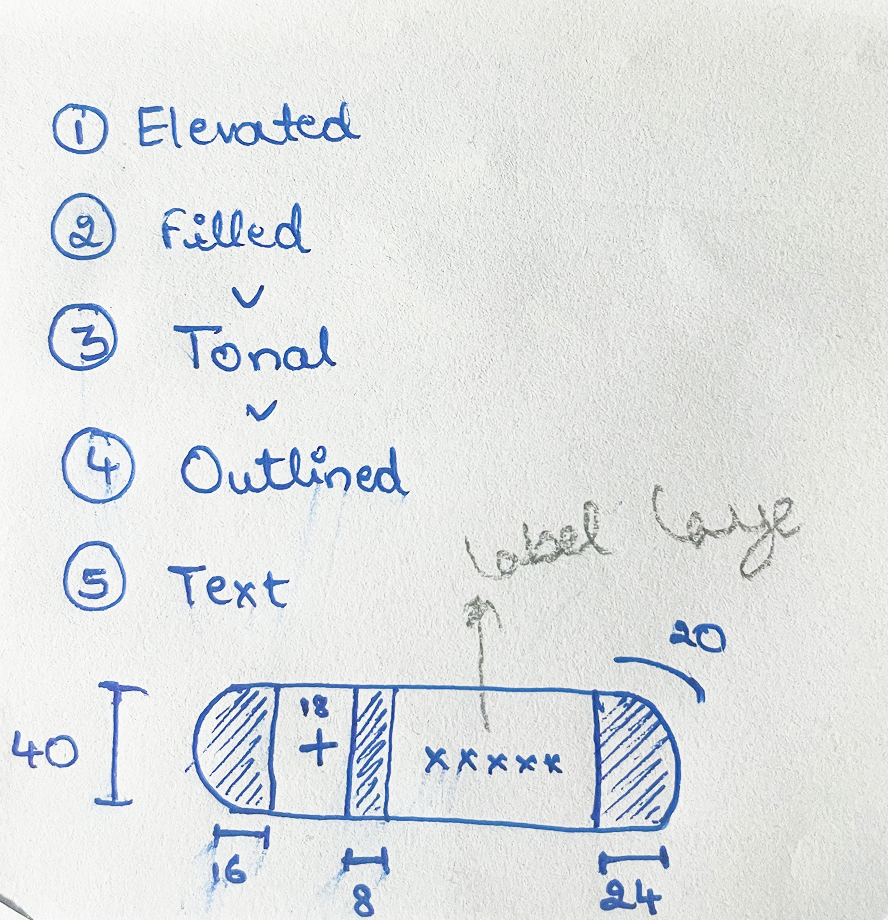 ① Elevated
② Filled
③ Tonal
④ Outlined
⑤ Text
Label Large
20
40
18
+ xxxxx
16
8
24